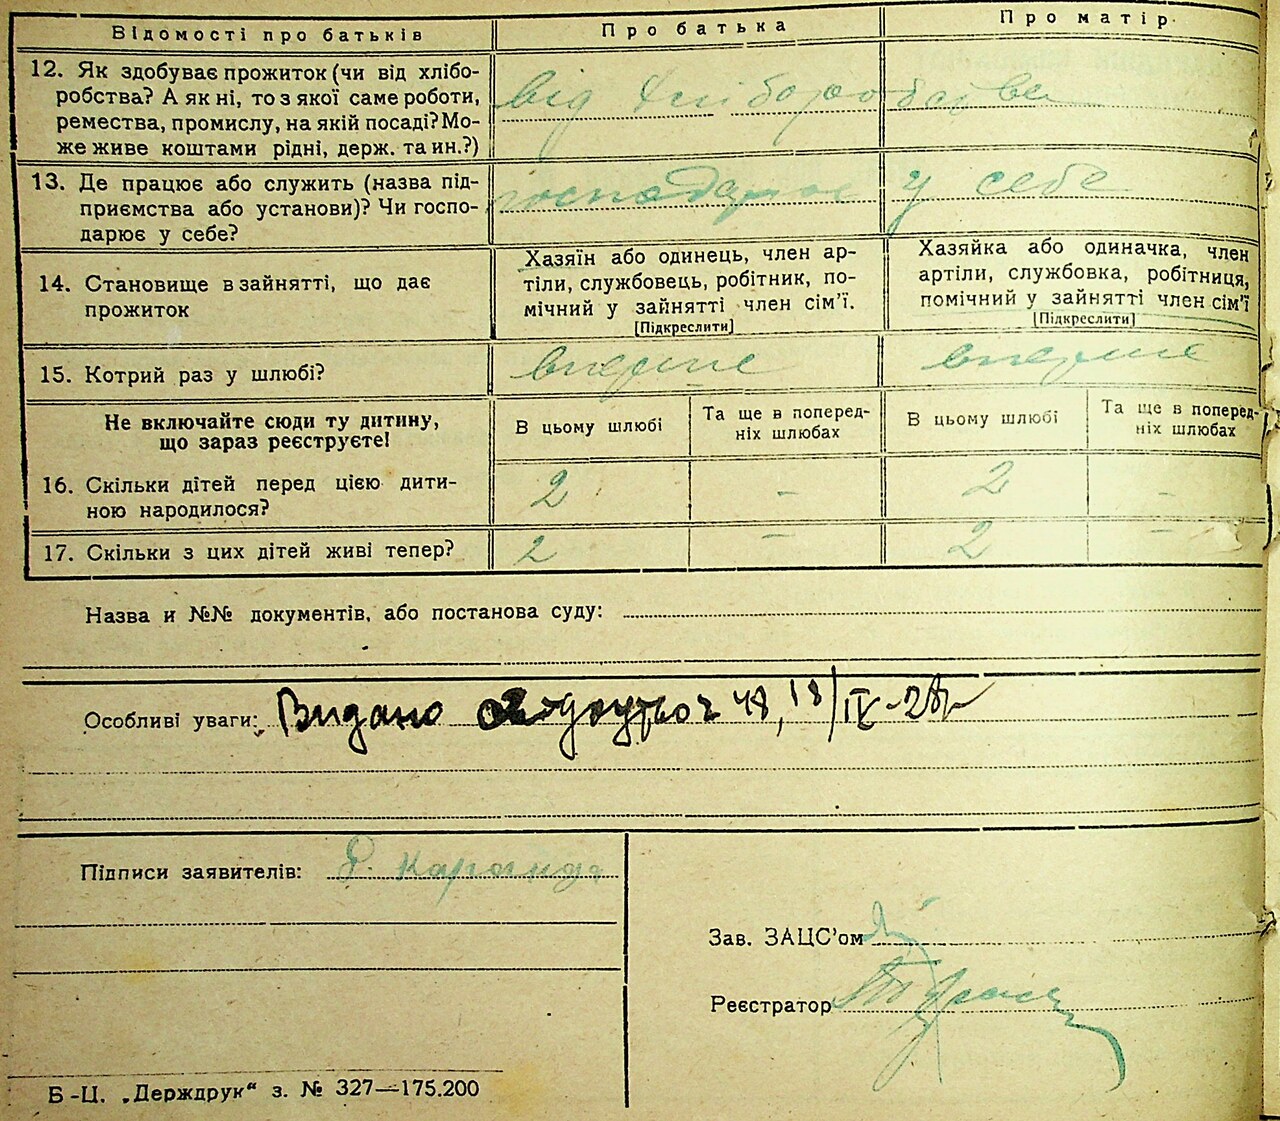 Відомості про батьків
Про батька
Про матір
12. Як здобуває прожиток (чи від хлібо-
робства? А як ні, то з якої саме роботи,
ремества, промислу, на якій посаді? Мо-
же живе коштами рідні, держ. та ин.?)
від хліборобства
13. Де працює або служить (назва під-
приємства або установи)? Чи госпо-
дарює у себе?
у себе
14. Становище в зайнятті, що дає
прожиток
Хазяїн або одинець, член ар-
тіли, службовець, робітник, по-
мічний у зайнятті член сім'ї.
[Підкреслити]
Хазяйка або одиначка, член
артіли, службовка, робітниця,
помічний у зайнятті член сім'ї
[Підкреслити]
15. Котрий раз у шлюбі?
вперше
вперше
Не включайте сюди ту дитину,
що зараз реєструєте!
В цьому шлюбі
Та ще в поперед-
ніх шлюбах
В цьому шлюбі
Та ще в поперед-
ніх шлюбах
16. Скільки дітей перед цією дити-
ною народилося?
2 – 2 –
17. Скільки з цих дітей живі тепер?
2 – 2 –
Назва и №№ документів, або постанова суду:
Особливі уваги: Видано 48, 18/IV-28р
Підписи заявителів:
Зав. ЗАЦС'ом
Реєстратор
Б-Ц. „Держдрук“ з. № 327—175.200